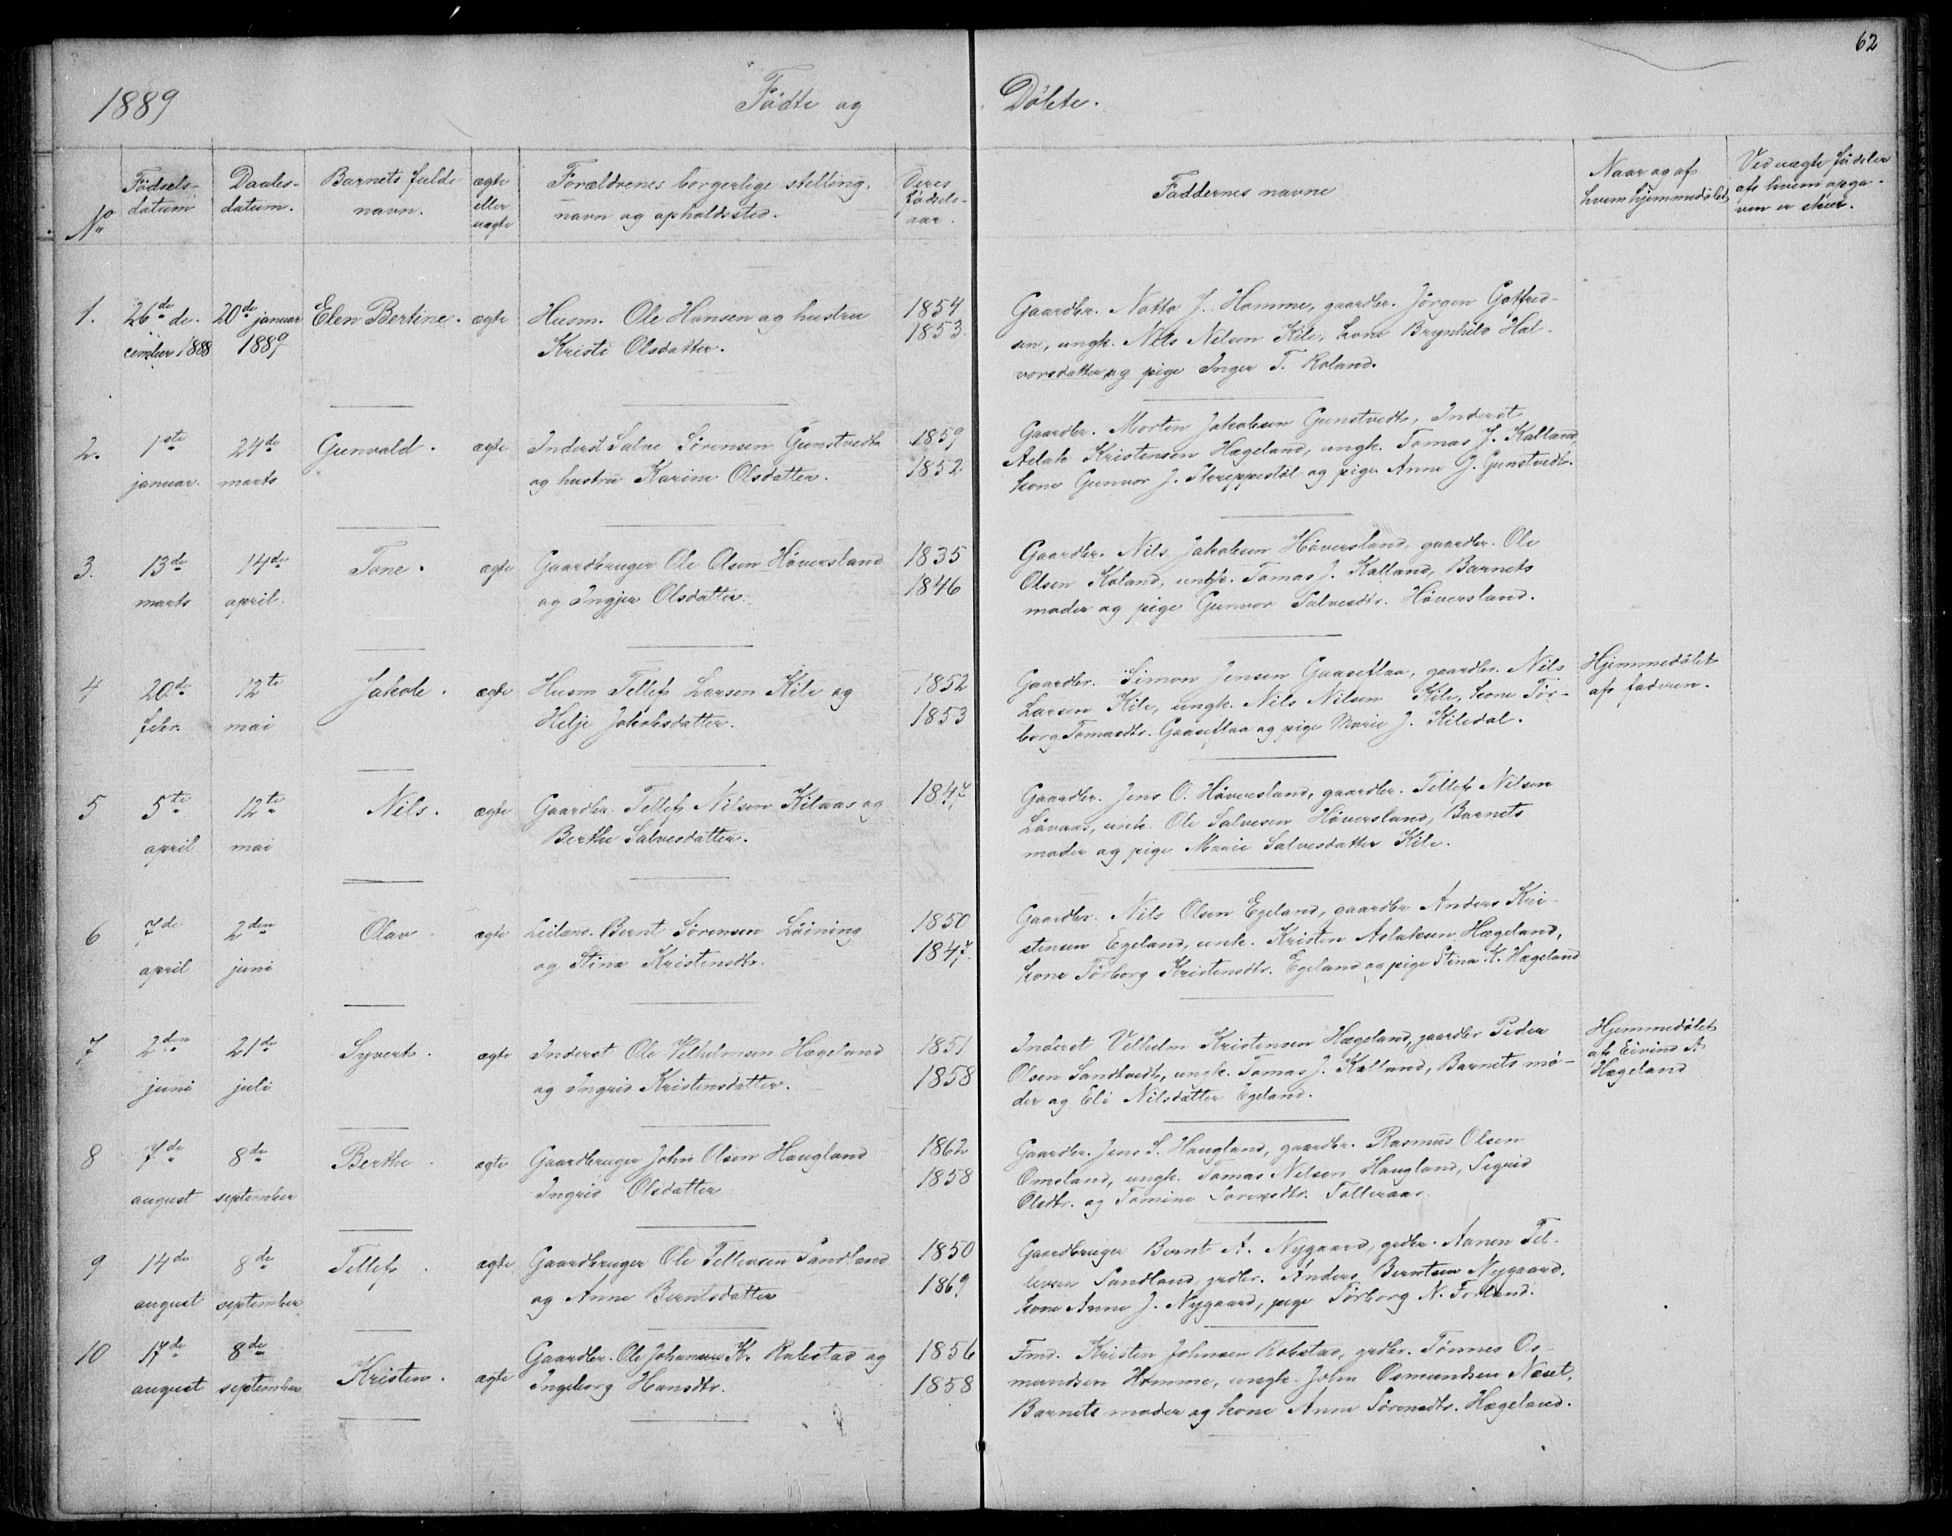 62
1889 Fødte og Døbte.
No Fødsels-datum Daabs-datum. Barnets fulde navn. ægte eller uægte Forældrenes borgerlige stilling, navn og opholdssted. Deres fødsels-aar. Faddernes navne Naar og af hvem hjemmedøbt Ved uægte fødsler af hvem opga-ven er skeet.
1. 26de de- 20de januar Elen Bertine. ægte Husm. Ole Hansen og hustru 1854
cember 1888 1889 Kristi Olsdatter. 1853.
Gaardbr. Notto J. Homme, gaardbr. Jørgen Gotfred-
sen, ungk. Nils Nilsen Kile, kone Brynhild Hal-
vorsdatter og pige Inger T. Roland.
2. 1ste 24de Gunvald. ægte Inderst Salve Sørensen Gunstvedt 1859
januar. marts og hustru Karine Olsdatter. 1852
Gaardbr. Morten Jakobsen Gunstvedt, Inderst
Aslak Kristensen Hægeland, ungk. Tomas J. Kalland,
kone Gunvor J. Skreppestøl og pige Anne G. Gunstvedt.
3. 13de 14de Tone. ægte Gaardbruger Ole Olsen Høversland 1835
marts april og Ingjer Olsdatter. 1846
Gaardbr. Nils Jakobsen Høversland, gaardbr. Ole
Olsen Roland, ungk. Tomas J. Kalland, Barnets
moder og pige Gunvor Salvesdtr. Høversland.
4 20de 12te Jakob. ægte Husm Tellef Larsen Kile og 1852
febr. mai Helje Jakobsdatter. 1853
Gaardbr. Simon Jensen Gaaseflaa, gaardbr. Nils
Larsen Kile, ungk. Nils Nilsen Kile, kone Tor-
borg Tomasdtr. Gaaseflaa og pige Marie J. Kiledal.
Hjemmedøbt
af faderen.
5 5te 12te Nils. ægte Gaardbr. Tellef Nilsen Kilaas og 1847
april mai Berthe Salvesdatter.
Gaardbr. Jens O. Høversland, gaardbr. Tellef Nilsen
Løvaas, unk. Ole Salvesen Høversland, Barnets
moder og pige Marie Salvesdatter Kile.
6 7de 2den Olav ægte Leilænd. Bernt Sørensen Løining 1850
april juni og Stina Kristensdtr. 1847.
Gaardbr. Nils Olsen Egeland, gaardbr Anders Kri-
stensen Egeland, unk. Kristen Aslaksen Hægeland,
kone Torborg Kristensdtr. Egeland og pige Stina K. Hægeland
7 2den 21de Syvert. ægte Inderst Ole Vilhelmsen Hægeland 1851
juni juli og Ingrid Kristensdatter. 1858
Inderst Vilhelm Kristensen Hægeland, gaardbr Peder
Olsen Sandtvedt, ungk. Tomas J. Kalland, Barnets mo-
der og Eli Nilsdatter Egeland.
Hjemmedøbt
af Eivind A.
Hægeland
8 7de 8de Berthe. ægte Gaardbruger John Olsen Haugland 1862
august september Ingrid Olsdatter 1858
Gaardbr. Jens S. Haugland, gaardbr. Rasmus Olsen
Omsland, ungk. Tomas Nilsen Haugland, Sigrid
Olsdtr. og Tomine Sorensdtr. Tolleraas.
9 14de 8de Tellef. ægte Gaardbruger Ole Tellensen Sandland 1850
august september og Anne Berntsdatter 1869
Gaardbruger Bernt A. Nygaard, grdbr. Aanen Tel-
lefsen Sandland, grdbr. Anders Berntsen Nygaard,
kone Anne J. Nygaard, pige Torborg N. Forland.
10 17de 8de Kristen. ægte Gaardbr. Ole Johansen K. Robstad og 1856
august september Ingeborg Hansdtr. 1858
Fmd. Kristen Johnsen Robstad, grdbr. Tønnes Os-
mundsen Homme, ungk. John Osmundsen Næset,
Barnets moder og kone Anne Sørensdtr. Hægeland.